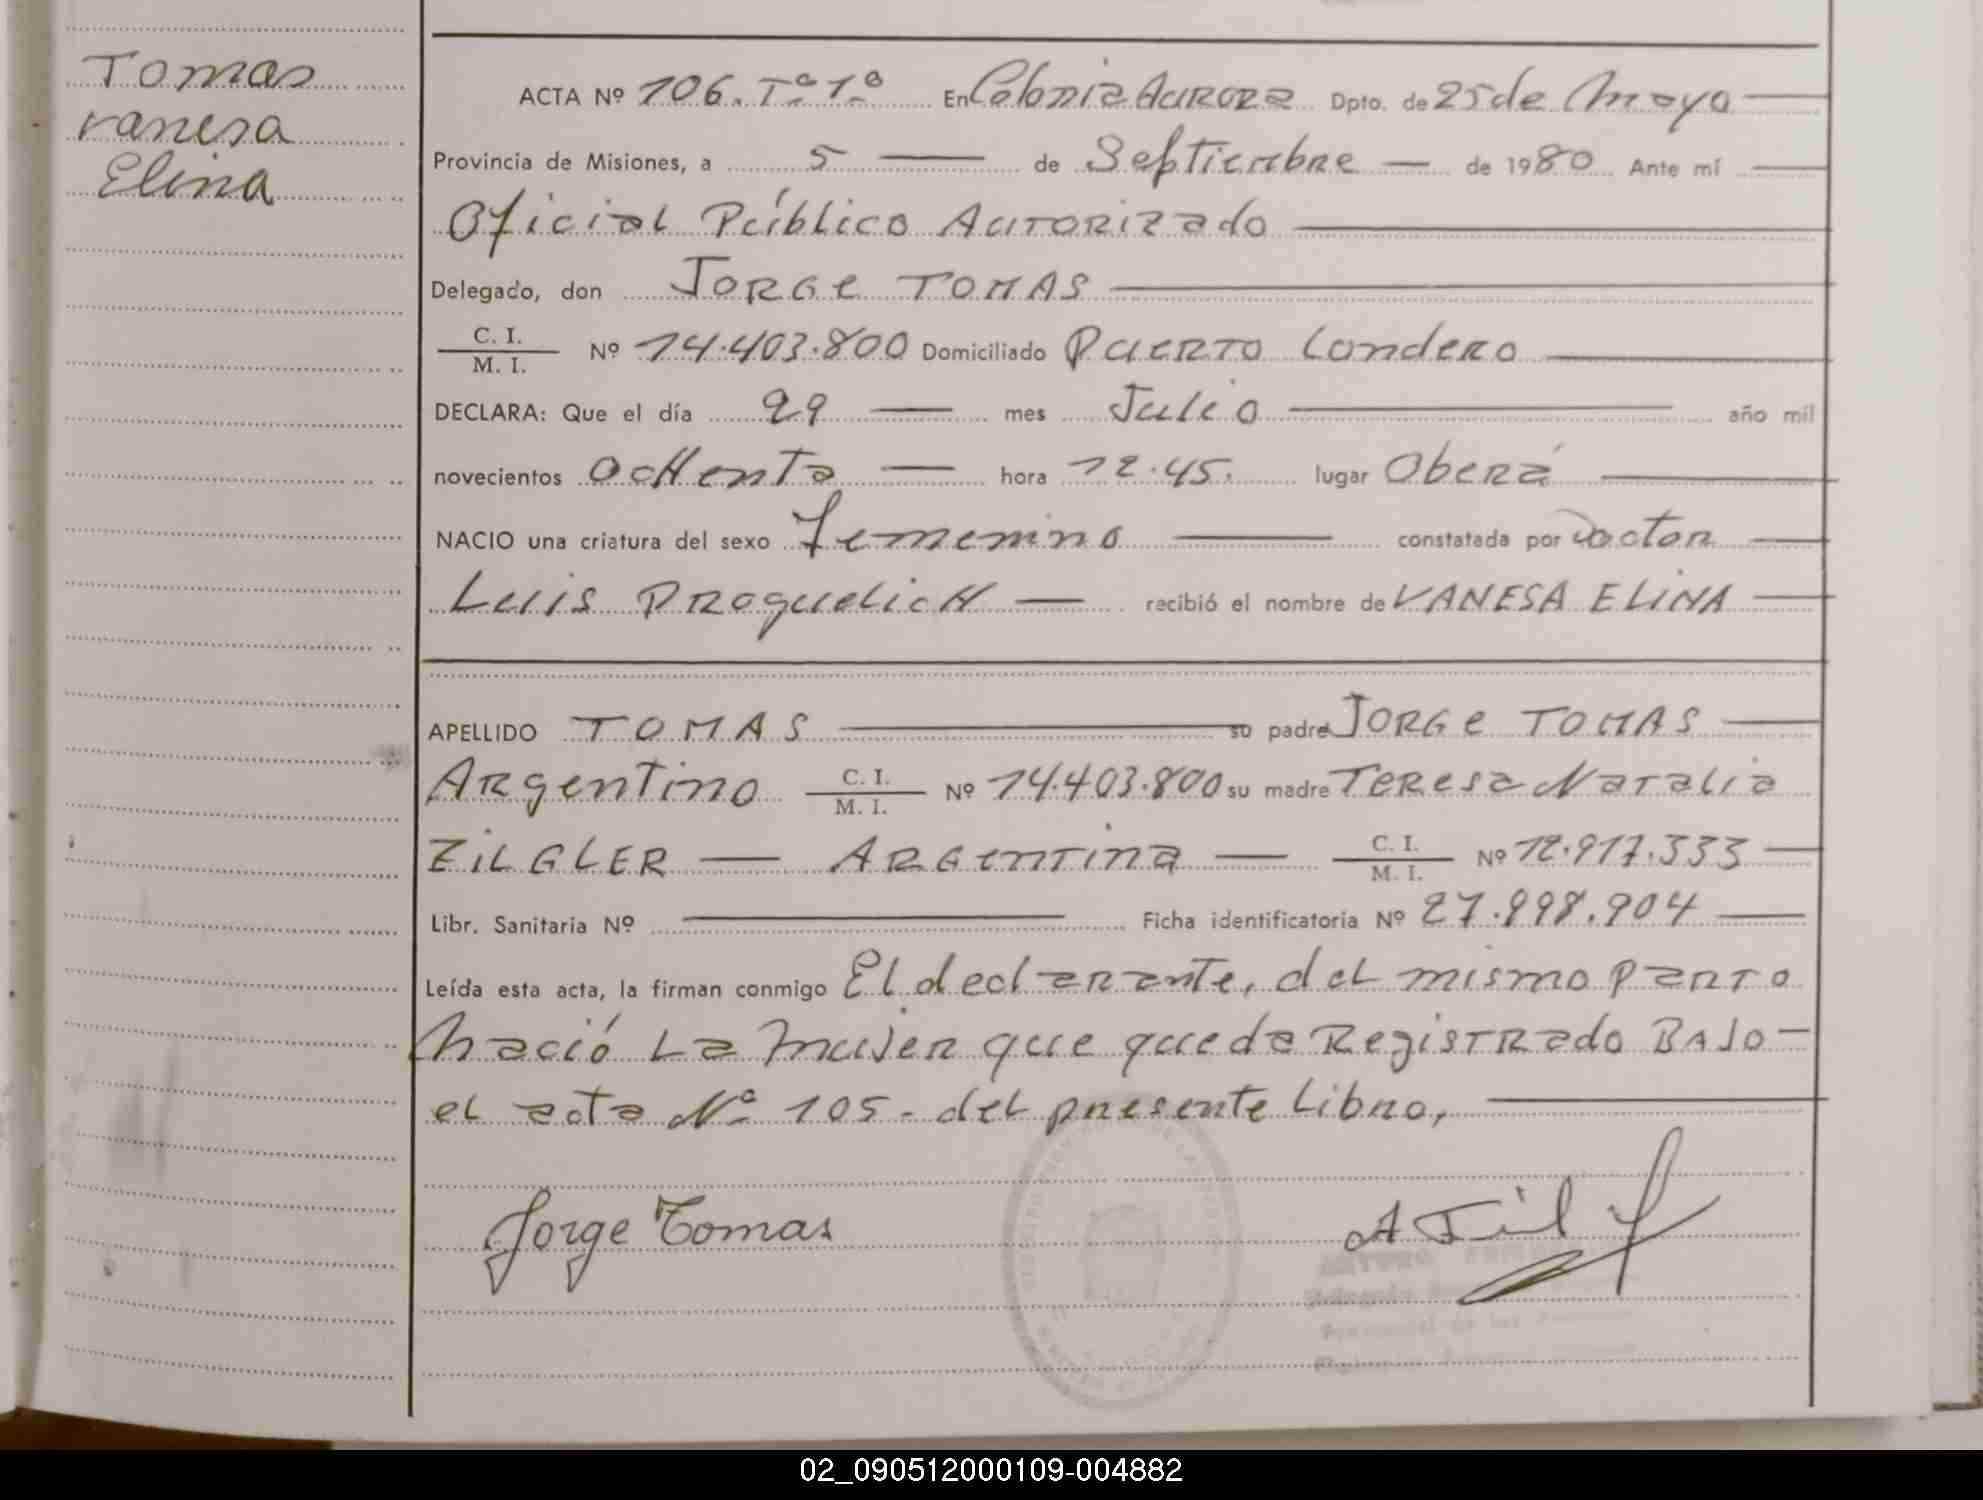 Tomas
Vanesa
Elina
ACTA Nº 106. Tº 1º En Colonia Aurora Dpto. de 25 de Mayo
Provincia de Misiones, a 5 de Septiembre de 1980 Ante mí
Oficial Público Autorizado
Delegado, don JORGE TOMAS
C. I.
M. I. Nº 14.403.800 Domiciliado Puerto Londero
DECLARA: Que el día 29 mes Julio año mil
novecientos ocHenta hora 12.45. lugar Oberá
NACIO una criatura del sexo femenino constatada por Doctor
Luis ProquelicH recibió el nombre de VANESA ELINA
APELLIDO TOMAS su padre JORGE TOMAS
Argentino C. I.
M. I. Nº 14.403.800 su madre Teresa Natalia
ZILGLER ARGENTINA C. I.
M. I. Nº 12.917.333
Libr. Sanitaria Nº Ficha identificatoria Nº 27.998.904
Leída esta acta, la firman conmigo El declarante, del mismo parto
Nació La Mujer que queda Registrado BAJO
el acta Nº 105- del presente Libro,
Jorge Tomas
ARTURO
02_090512000109-004882